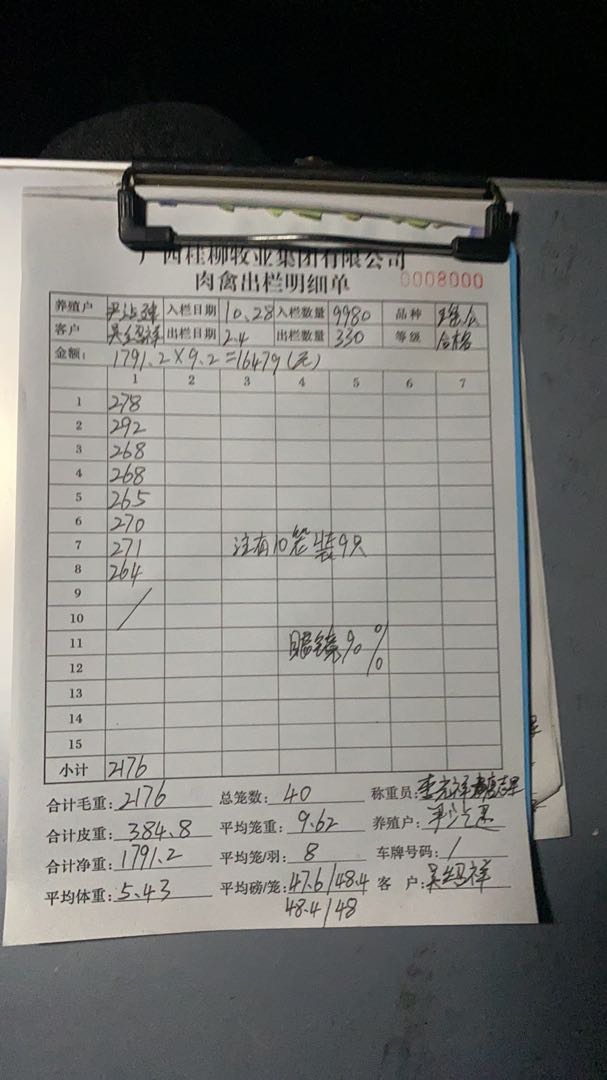 广西桂柳牧业集团有限公司
肉禽出栏明细单 0008000
养殖户 入栏日期 10.28 入栏数量 9980 品种
客户 吴绍祥 出栏日期 2.4 出栏数量 330 等级 合格
金额: 1791.2×9.2=16479(元)
1 2 3 4 5 6 7
1 278
2 292
3 268
4 268
5 265
6 270
7 271 注有10笼装9只
8 264
9
10
11 眼镜90%
12
13
14
15
小计 2176
合计毛重: 2176 总笼数: 40 称重员:
合计皮重: 384.8 平均笼重: 9.62 养殖户:
合计净重: 1791.2 平均笼/羽: 8 车牌号码: /
平均体重: 5.43 平均磅/笼: 47.6/48.4 客户: 吴绍祥
48.4/48